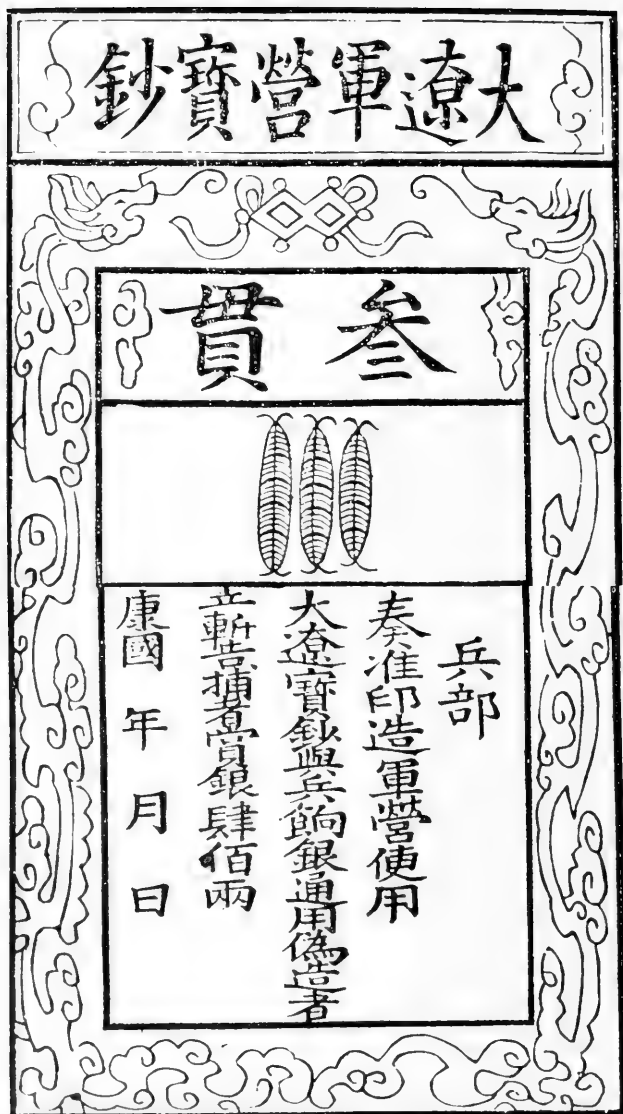 大遼軍營寶鈔
叁貫
兵部
奏准印造軍營使用
大遼寶鈔與兵餉銀通用偽造者
立斬告捕者賞銀肆佰兩
康國 年 月 日